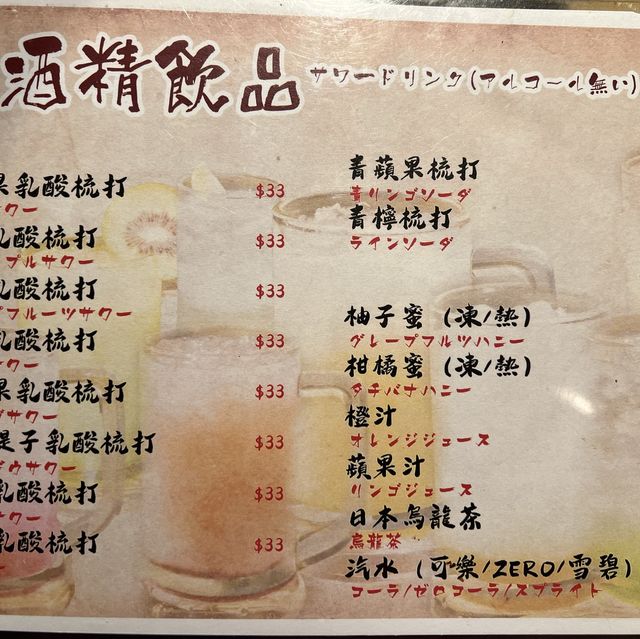 酒精飲品 サワードリンク(アルコール無い)
果乳酸梳打 $33
サワー
乳酸梳打 $33
プルサワー
乳酸梳打 $33
プフルーツサワー
乳酸梳打 $33
サワー
果乳酸梳打 $33
サワー
提子乳酸梳打 $33
ドウサワー
乳酸梳打 $33
サワー
乳酸梳打 $33
青蘋果梳打
青リンゴソーダ
青檸梳打
ラインソーダ
柚子蜜 (凍/熱)
グレープフルツハニー
柑橘蜜 (凍/熱)
タチバナハニー
橙汁
オレンジジュース
蘋果汁
リンゴジュース
日本烏龍茶
烏龍茶
汽水 (可樂/ZERO/雪碧)
コーラ/ゼロコーラ/スプライト